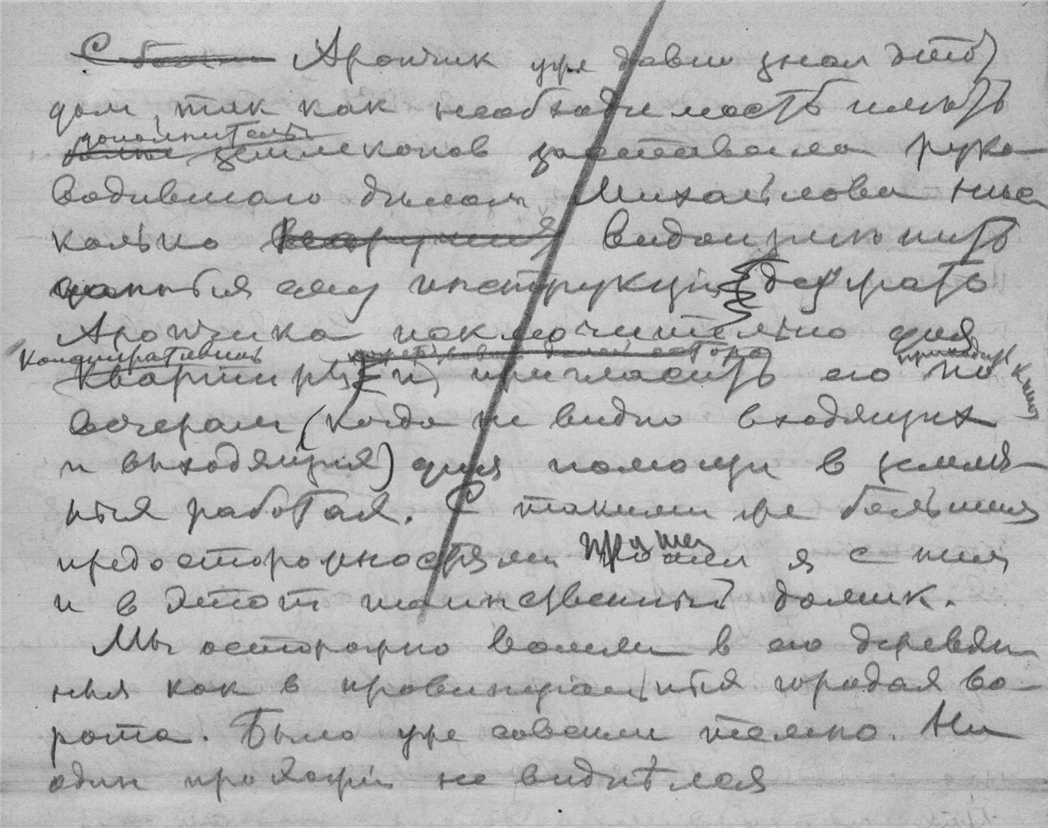 Арончик уже давно знал этот
дом, так как необходимость иметь
дополнительн землекопов заставила руко
водившаго дѣлом Михайлова нѣс
колько видоизмѣнить
данныя ему инструкціи беречь
Арончика исключительно для
конспиративн
квартиры и пригласить его приходить к ним по
вечерам (когда не видно входящих
и выходящих) для помощи в земля
ных работах. С такими же большими
предосторожностями пришел я с ним
и в этот таинственный домик.
Мы осторожно вошли в его деревян
ныя как в провинціальных городах во
рота. Было уже совсем темно. Ни
один прохожій не виднѣлся